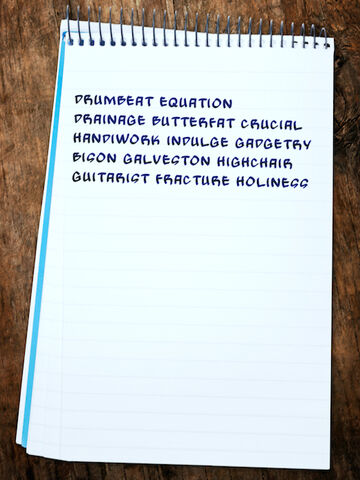 DRUMBEAT EQUATION
DRAINAGE BUTTERFAT CRUCIAL
HANDIWORK INDULGE GADGETRY
BISON GALVESTON HIGHCHAIR
GUITARIST FRACTURE HOLINESS